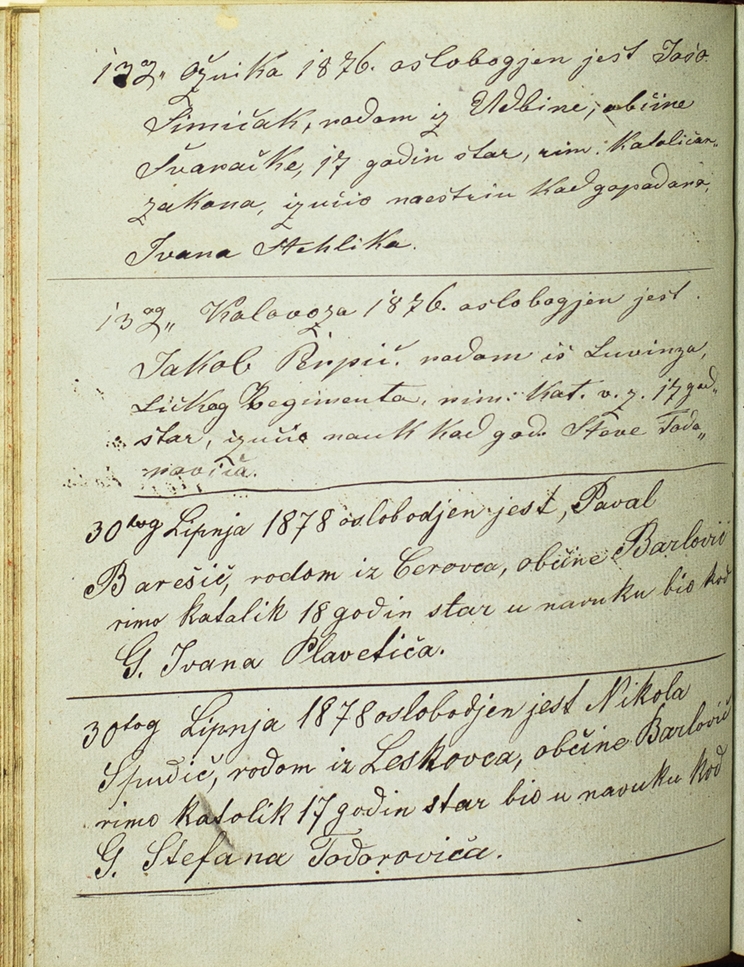 13og„ Ožuika 1876. oslobogjen jest Joso
Šimičak, rodom iz Udbine, občine
Švaračke, 17 godin star, rim. Katoličan„
zakona, izučio maestriu Kod gopodara,
Ivana Stehlika.
13og„ Kolovoza 1876. oslobogjen jest.
Jakob Perpić. rodom is Lovinza,
Ličkog Regimenta, rim: Kat. v. z. 17 god„
star, izučio nauk Kod god. Steve Todo„
rovića.
30tog Lipnja 1878 oslobodjen jest, Paval
Barešić, rodom iz Cerovca, občine Barlović
rimo katolik 18 godin star u navuku bio kod
G. Ivana Plavetića.
30tog Lipnja 1878 oslobodjen jest Nikola
Spudić, rodom iz Leskovca, občine Barlović
rimo katolik 17 godin star bio u navuku kod
G. Stefana Todorovića.